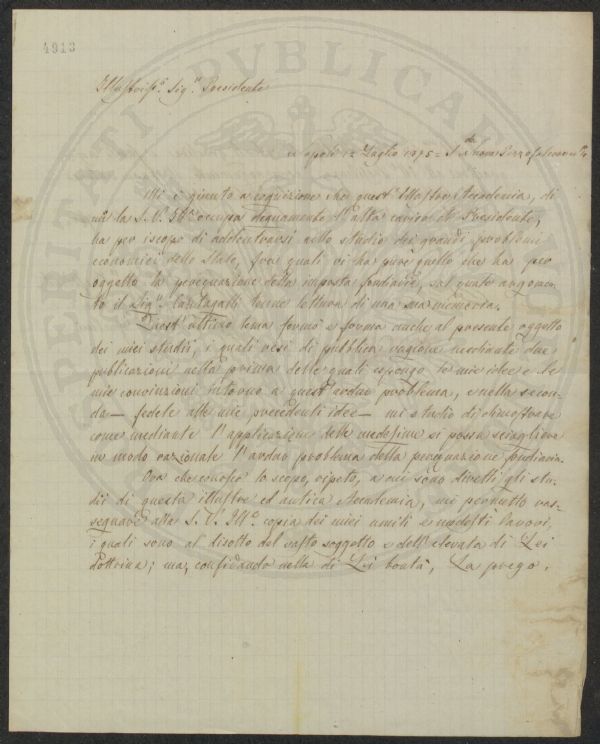 4913
Illustriss.º Sig.r Presidente
Napoli 12 Luglio 1875 =
Mi è giunto a cognizione che quest'Illustre Accademia, di
cui la S. V. Ill.ma occupa degnamente l'alta carica di Presidente,
ha per iscopo di addentrarsi nello studio dei grandi problemi
economici dello Stato, fra quali vi ha pure quello che ha per
oggetto la perequazione della imposta fondiaria, sul quale argomen-
to il Sig.r tenne lettura di una sua memoria.
Quest'ultimo tema formò e forma anche al presente oggetto
dei miei studii, i quali resi di pubblica ragione mediante due
pubblicazioni nella prima delle quali espongo le mie idee e le
mie convinzioni intorno a quest'arduo problema, e nella secon-
da — fedele alle mie precedenti idee — mi studio di dimostrare
come mediante l'applicazione delle medesime si possa sciogliere
in modo razionale l'arduo problema della perequazione fondiaria.
Ora che conosco lo scopo, ripeto, a cui sono diretti gli stu-
dii di questa illustre ed antica Accademia, mi permetto ras-
segnare alla S. V. Ill.ma copia dei miei umili e modesti lavori,
i quali sono al disotto del vasto soggetto e dell'elevata di Lei
dottrina; ma, confidando nella di Lei bontà, La prego,
SPERITATI PVBLICAE